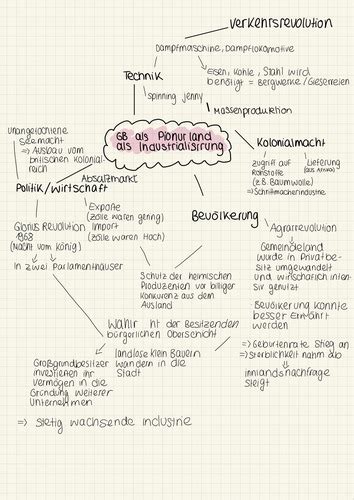 Verkehrsrevolution
Dampfmaschine, Dampflokomotive
Technik
Eisen, Kohle, Stahl wird
benötigt = Bergwerke/Giesserreien
spinning jenny
Massenproduktion
GB als Pionurland
als Industrialisirrung
Unangefochtene
Seemacht
=> Ausbau vom
britischen Kolonial-
reich
Kolonialmacht
Zugriff auf
Rohstoffe
(z.B. Baumwolle)
Lieferung
(aus Afrika)
=> Schrittmacherindustrie
Absatzmarkt
Politik/Wirtschaft
Exporte
(Zölle waren gering)
Import
(Zölle waren Hoch)
Glorius Revolution
1968
(Macht vom König)
In zwei Parlamenthäuser
Bevölkerung
Agrarrevolution
Gemeindeland
wurde in Privatbe-
sitz umgewandelt
und wirtscharlich inten-
siv genutzt
Schutz der heimischen
Produzenten vor billiger
Konkurenz aus dem
Ausland
Bevölkerung konnte
besser Ernährt
werden
=> Geburtenrate Stieg an
=> Sterblichkeit nahm ab
Innlandsnachfrage
steigt
der Besitzenden
bürgerlichen Oberschicht
Großgrundbesitzer
investieren ihr
Vermögen in die
Gründung weiterer
Unternehmen
landlose klein Bauern
wandern in die
Stadt
=> stetig wachsende Industrie